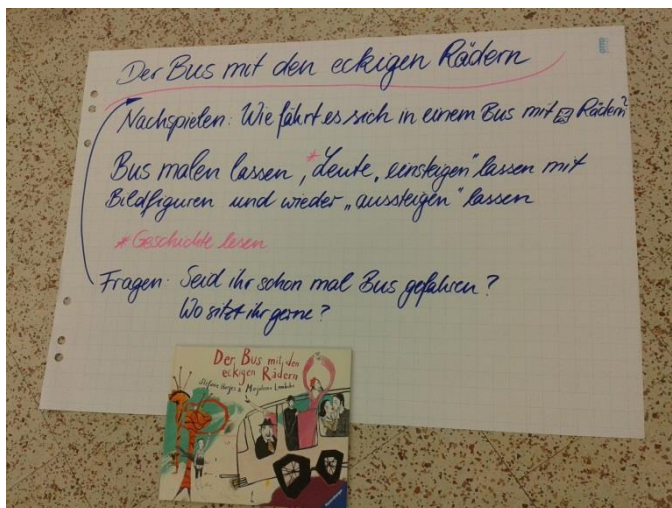 Der Bus mit den eckigen Rädern
Nachspielen: Wie fährt es sich in einem Bus mit Rädern?
Bus malen lassen, * Leute „einsteigen" lassen mit
Bildfiguren und wieder „aussteigen" lassen
* Geschichte lesen
Fragen: Seid ihr schon mal Bus gefahren?
Wo sitzt ihr gerne?
Der Bus mit den
eckigen Rädern